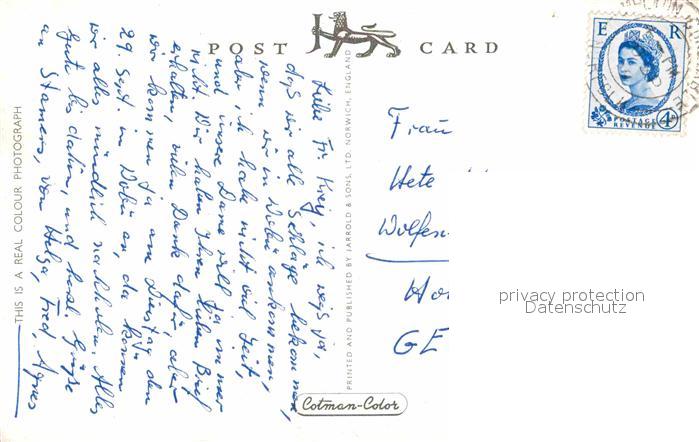 POST CARD
E R
POSTAGE
REVENUE
4D
Liebe Fr. Krey, ich weiß ja,
daß wir alle Schläge bekommen,
wenn wir in Wobü ankommen,
aber ich habe nicht viel Zeit,
und unsere Dame will ja immer
nicht. Wir haben Ihren lieben Brief
erhalten, vielen Dank dafür, aber
wir kommen ja am Dienstag den
29. Sept. in Wobü an, da können
wir alles mündlich nachholen. Alles
Gute bis dahin, und herzl. Grüße
an Stamers, von Helga, Fred, Agnes
Frau
Hete
Wolfen
Ho
GE
THIS IS A REAL COLOUR PHOTOGRAPH
PRINTED AND PUBLISHED BY JARROLD & SONS, LTD. NORWICH, ENGLAND
Cotman-Color
privacy protection
Datenschutz